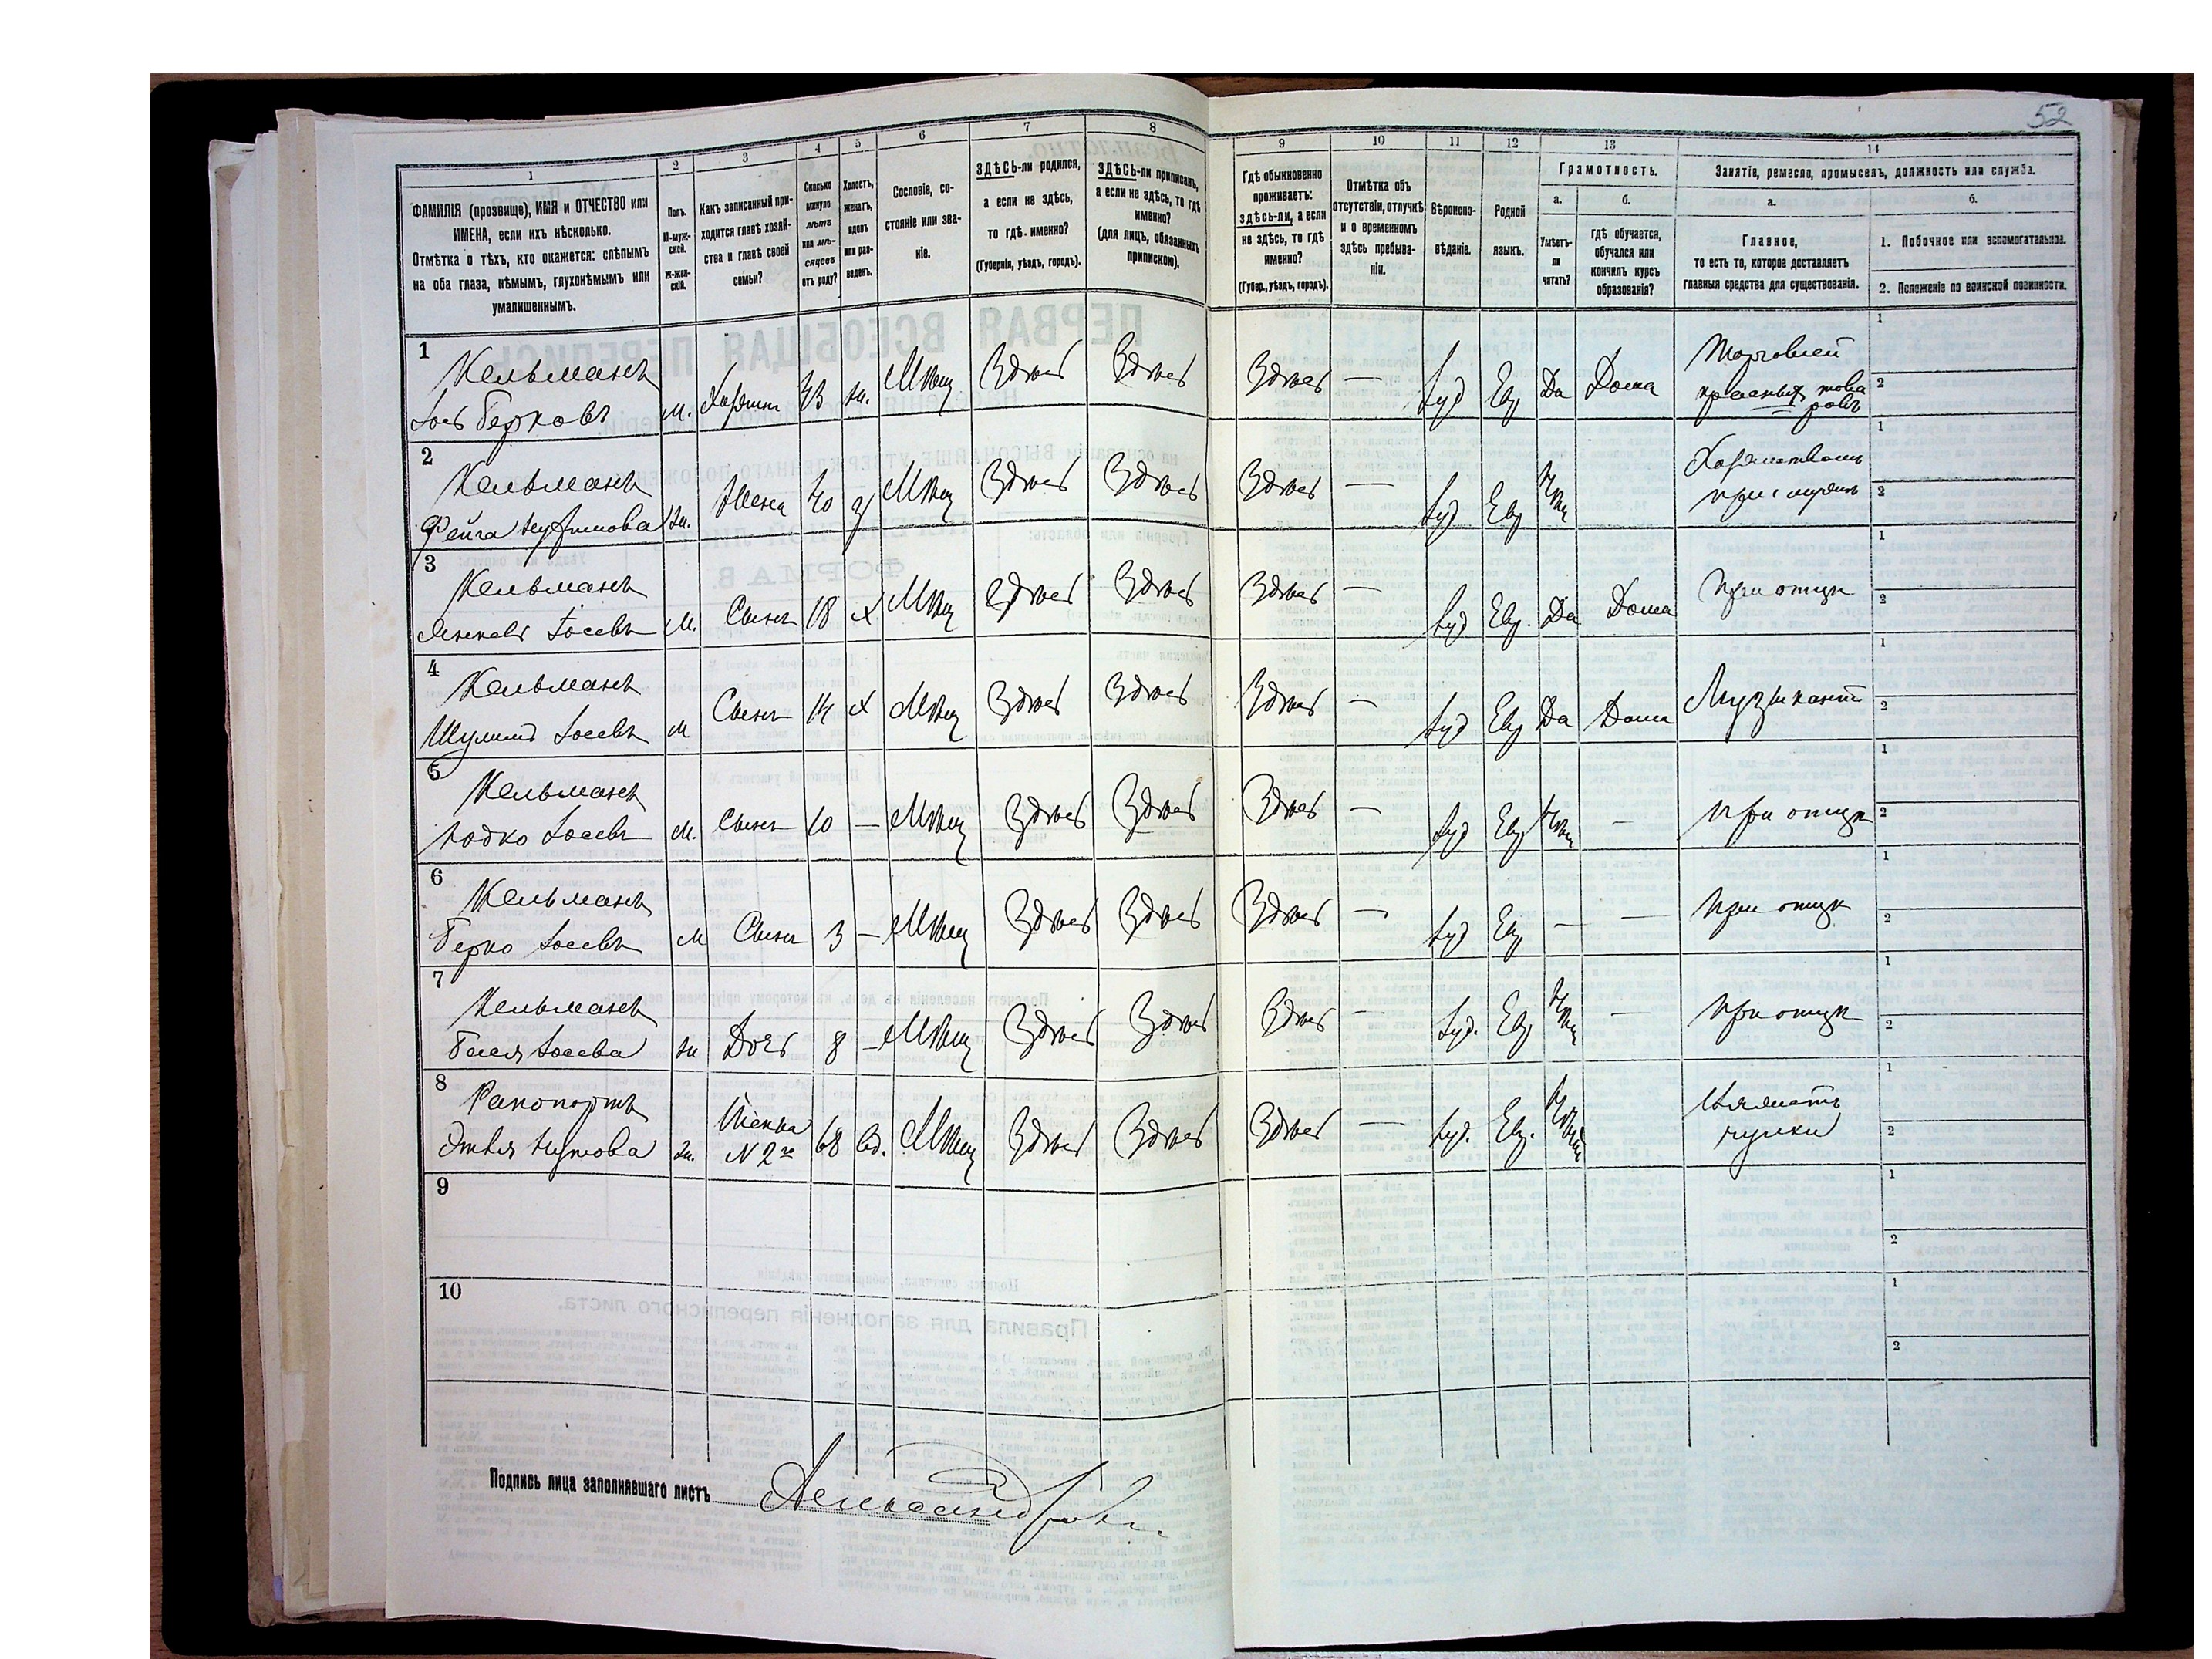 52
1
2
3
4
5
6
7
8
9
10
11
12
13
14
ФАМИЛІЯ (прозвище), ИМЯ и ОТЧЕСТВО или
ИМЕНА, если ихъ нѣсколько.
Отмѣтка о тѣхъ, кто окажется: слѣпымъ
на оба глаза, нѣмымъ, глухонѣмымъ или
умалишеннымъ.
Полъ.
М-муж-
ской.
Ж-жен-
скій.
Какъ записанный при-
ходится главѣ хозяй-
ства и главѣ своей
семьи?
Сколько
минуло
лѣтъ
или мѣ-
сяцевъ
отъ роду?
Холостъ,
женатъ,
вдовъ
или раз-
веденъ.
Сословіе, со-
стояніе или зва-
ніе.
ЗДѢСЬ-ли родился,
а если не здѣсь,
то гдѣ именно?
(Губернія, уѣздъ, городъ).
ЗДѢСЬ-ли приписанъ,
а если не здѣсь, то гдѣ
именно?
(для лицъ, обязанныхъ
припискою).
Гдѣ обыкновенно
проживаетъ:
здѣсь-ли, а если
не здѣсь, то гдѣ
именно?
(Губер., уѣздъ, городъ).
Отмѣтка объ
отсутствіи, отлучкѣ
и о временномъ
здѣсь пребыва-
ніи.
Вѣроиспо-
вѣданіе.
Родной
языкъ.
Грамотность.
а.
Умѣетъ-
ли
читать?
б.
гдѣ обучается,
обучался или
кончилъ курсъ
образованія?
Занятіе, ремесло, промыселъ, должность или служба.
а.
Главное,
то есть то, которое доставляетъ
главныя средства для существованія.
б.
1. Побочное или вспомогательное.
2. Положеніе по воинской повинности.
1 Кельманъ
Іось Берковъ м. Хозяинъ 43 ж. Мѣщ Здѣсь Здѣсь Здѣсь — Іуд Евр Да Дома Торговлей
красныхъ това
ровъ
1
2
2 Кельманъ
Фейга ж. Жена 40 з Мѣщ Здѣсь Здѣсь Здѣсь — Іуд Евр Нѣтъ
при мужѣ
1
2
3 Кельманъ
Іосевъ М. Сынъ 18 х Мѣщ Здѣсь Здѣсь Здѣсь — Іуд Евр. Да Дома При отцѣ
1
2
4 Кельманъ
Шулимъ Іосевъ м Сынъ 14 х Мѣщ Здѣсь Здѣсь Здѣсь — Іуд Евр Да Дома Музыкантъ
1
2
5 Кельманъ
Іодко Іосевъ м. Сынъ 10 — Мѣщ Здѣсь Здѣсь Здѣсь — Іуд Евр Нѣтъ — При отцѣ
1
2
6 Кельманъ
Берко Іосевъ м Сынъ 3 — Мѣщ Здѣсь Здѣсь Здѣсь — Іуд Евр — — При отцѣ
1
2
7 Кельманъ
Бейля Іосева ж Дочь 8 — Мѣщ Здѣсь Здѣсь Здѣсь — Іуд. Евр Нѣтъ — При отцѣ
1
2
8 Рапопортъ
ж. N 2го 68 вд. Мѣщ Здѣсь Здѣсь Здѣсь — Іуд. Евр. Нѣтъ
чулки
1
2
9
1
2
10
1
2
Подпись лица заполнявшаго листъ